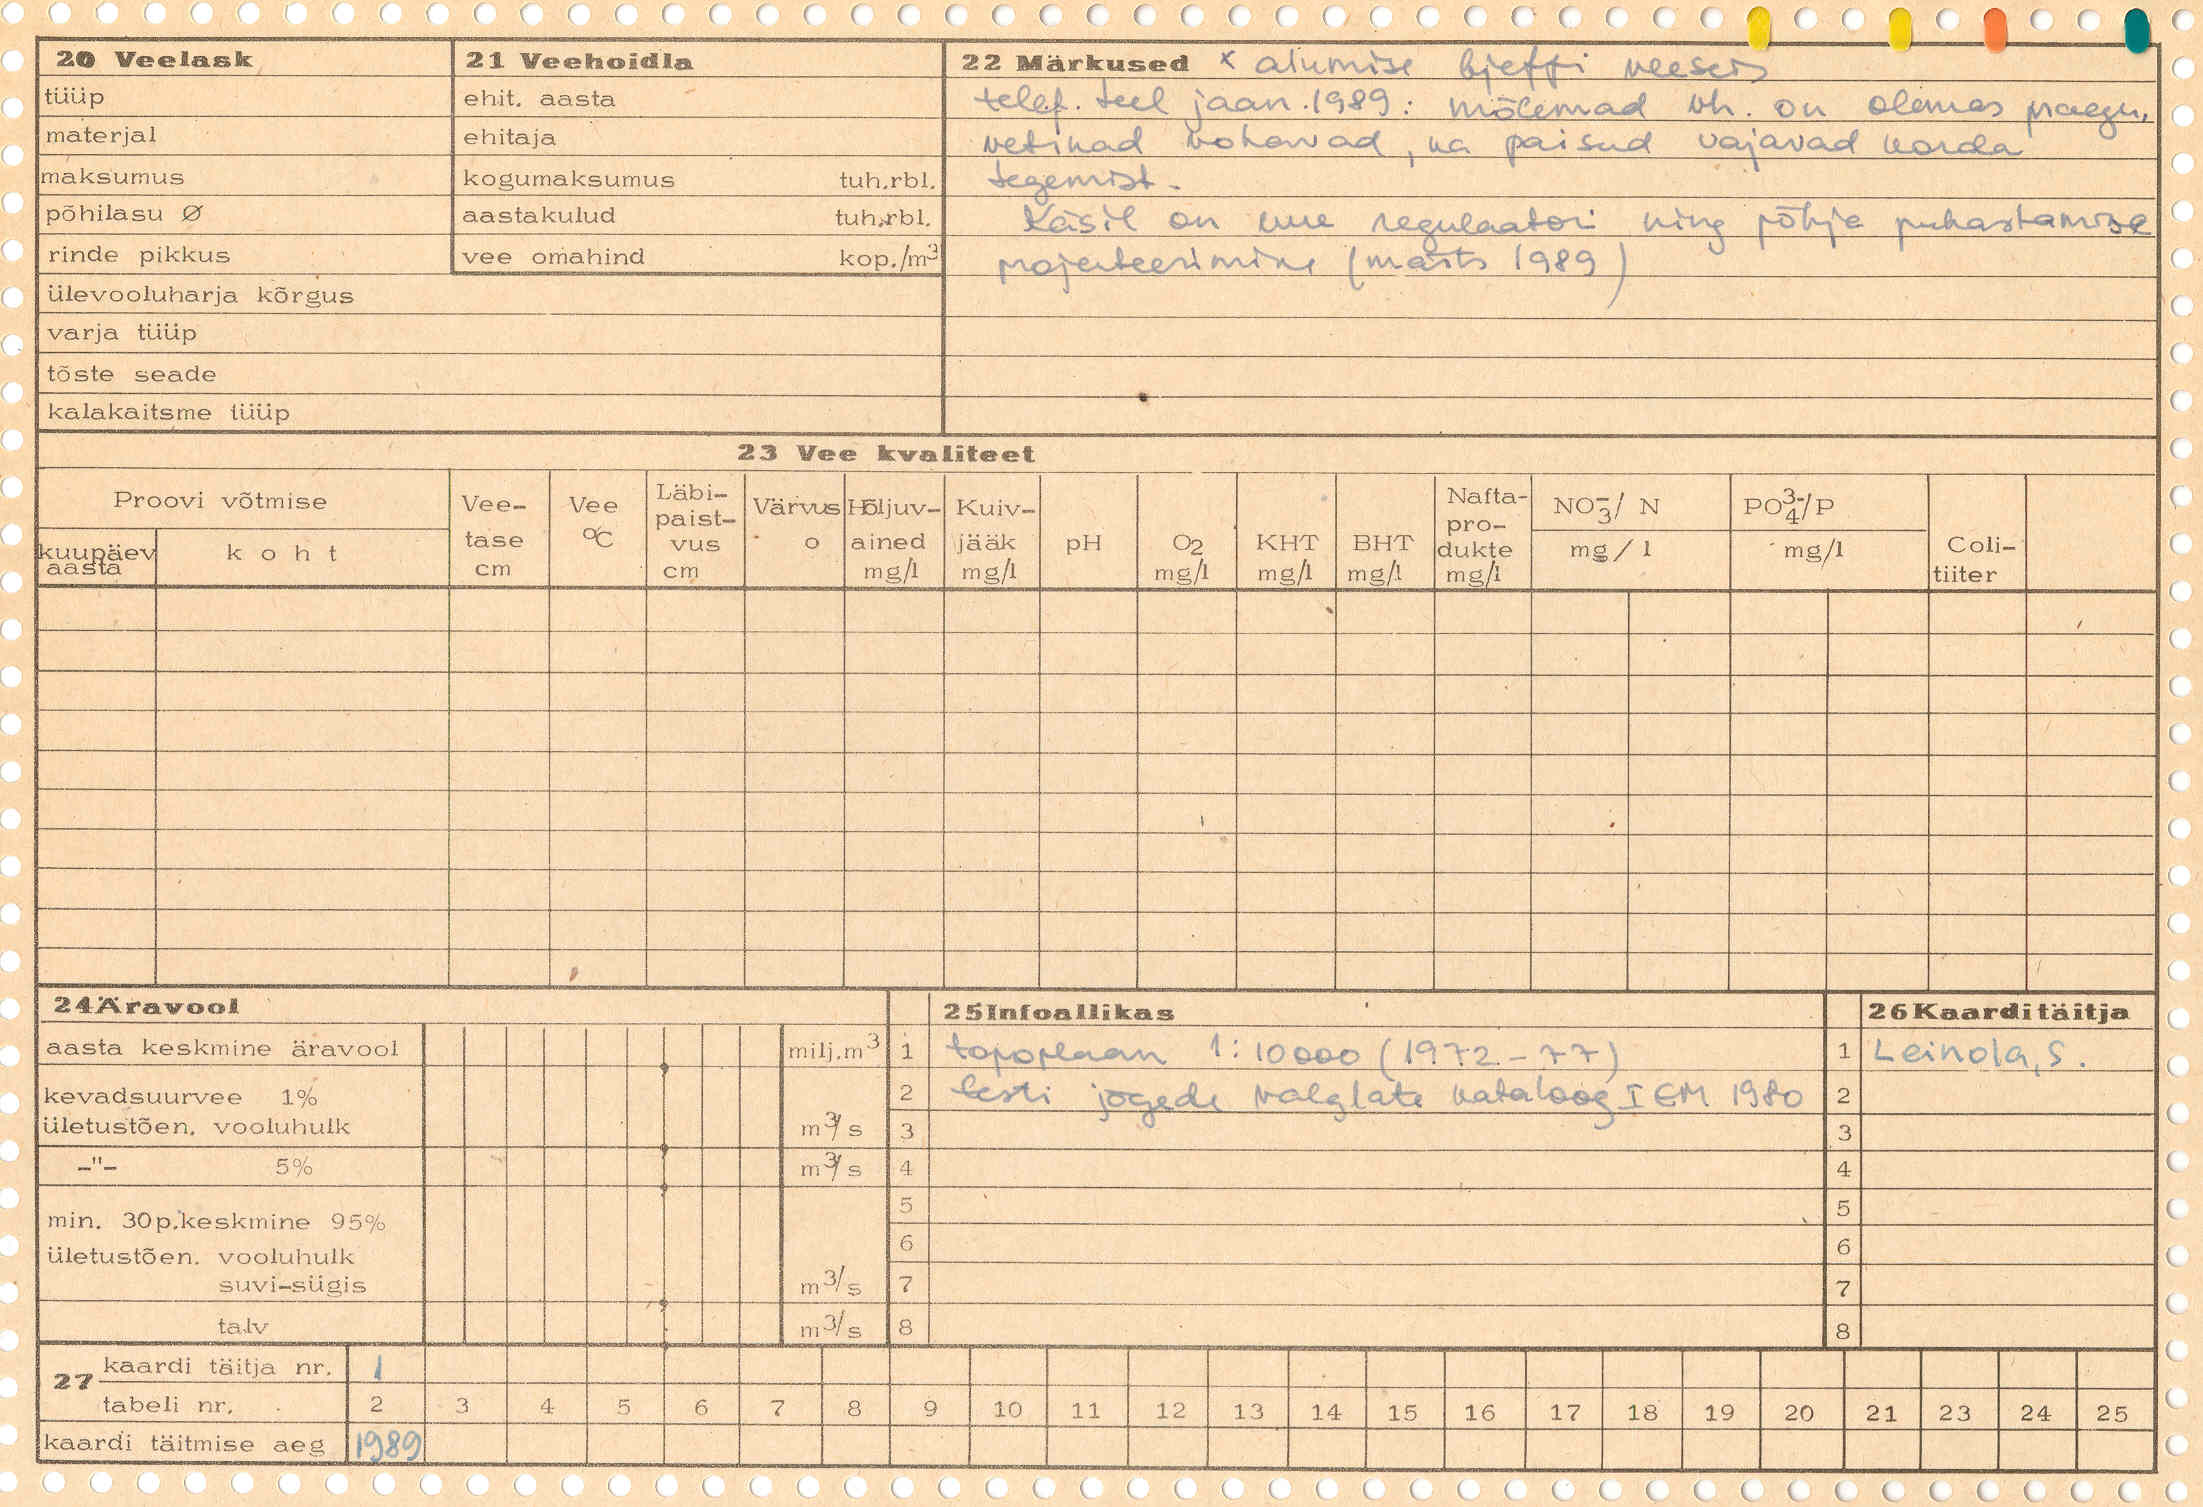 20 Veelask
tüüp
materjal
maksumus
põhilasu Ø
rinde pikkus
ülevooluharja kõrgus
varja tüüp
tõste seade
kalakaitsme tüüp
21 Veehoidla
ehit. aasta
ehitaja
kogumaksumus tuh.rbl.
aastakulud tuh.rbl.
vee omahind kop./m³
22 Märkused x alumise bjeffi veeseis
telef. teel jaan. 1989: mõlemad vh. on olemas praegu,
vetikad vohavad, ka paisud vajavad korda
tegemist.
Käsil on uue regulaatori ning põhja puhastamise
projekteerimine (märts 1989)
23 Vee kvaliteet
Proovi võtmise
kuupäev aasta
koht
Vee-tase cm
Vee °C
Läbi-paist-vus cm
Värvus o
Hõljuv-ained mg/l
Kuiv-jääk mg/l
pH
O2 mg/l
KHT mg/l
BHT mg/l
Nafta-pro-dukte mg/l
NO3-/ N mg/l
PO4 3-/P mg/l
Coli-tiiter
24 Äravool
aasta keskmine äravool milj.m³
kevadsuurvee 1%
ületustõen. vooluhulk m³/s
-"- 5% m³/s
min. 30p.keskmine 95%
ületustõen. vooluhulk
suvi-sügis m³/s
talv m³/s
25 Infoallikas
1 topoplaan 1:10000 (1972-77)
2 Eesti jõgede valglate kataloog I EM 1980
3
4
5
6
7
8
26 Kaarditäitja
1 Leinola, S.
2
3
4
5
6
7
8
27 kaardi täitja nr. 1
tabeli nr. 2 3 4 5 6 7 8 9 10 11 12 13 14 15 16 17 18 19 20 21 23 24 25
kaardi täitmise aeg 1989